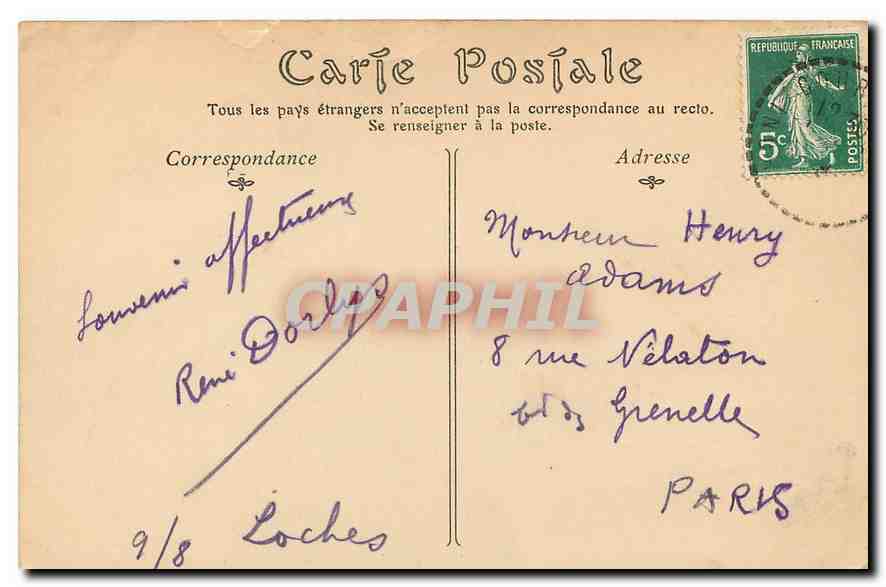 Carte Postale
Tous les pays étrangers n'acceptent pas la correspondance au recto.
Se renseigner à la poste.
Correspondance
Souvenir affectueux
René
9/8 Loches
Adresse
Monsieur Henry
Adams
8 rue Nélaton
Grenelle
PARIS
REPUBLIQUE FRANÇAISE
5c
POSTES
CPAPHIL